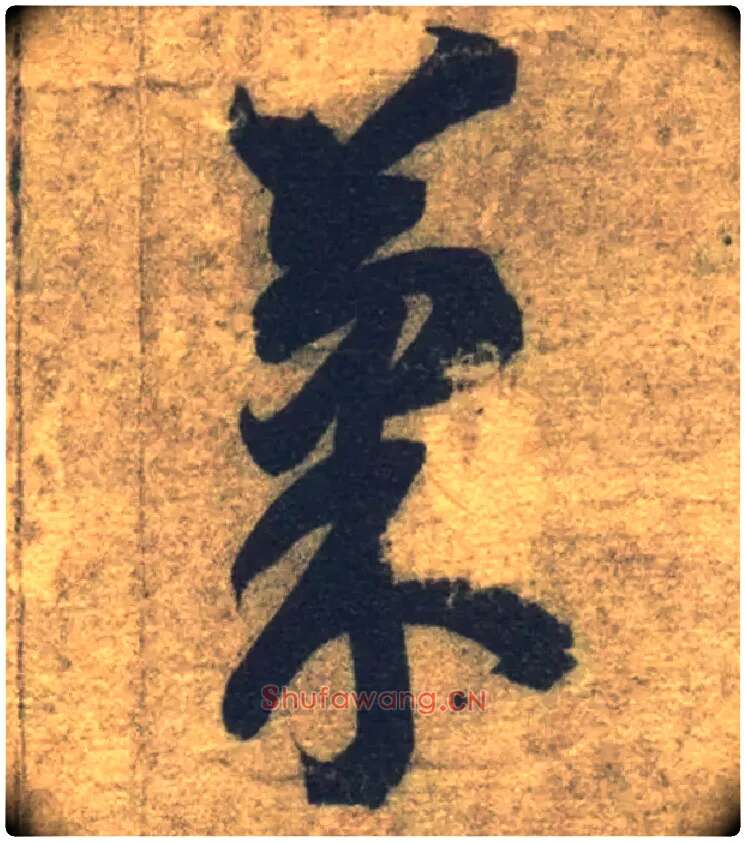 菓
Shufawang.CN